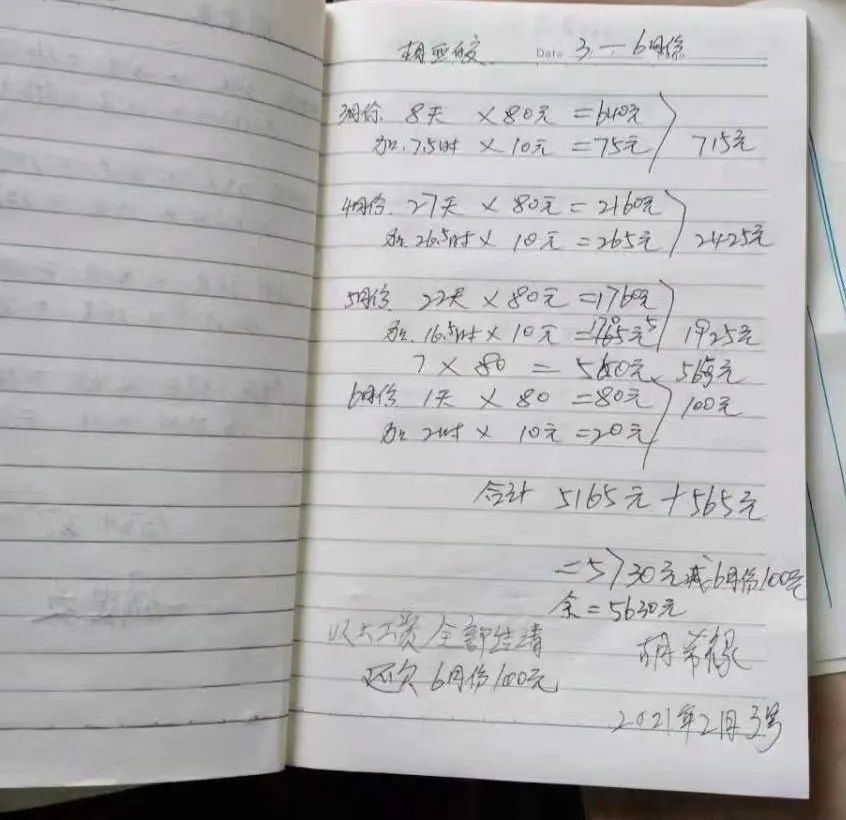 胡亚皎 Date 3—6月份
3月份. 8天 ×80元=640元 715元
加.7.5时 × 10元=75元
4月份. 27天 × 80元=2160元
加.26.5时× 10元=265元 2425元
5月份. 22天 × 80元=1760元
加.16.5时×10元=165元 1925元
7 × 80 = 560元 565元
6月份 1天 × 80 =80元 100元
加 2时 × 10元=20元
合计 5165元+565元
=5730元减6月份100元
余=5630元
以上工资全部结清 胡
还欠6月份100元
2021年2月3号